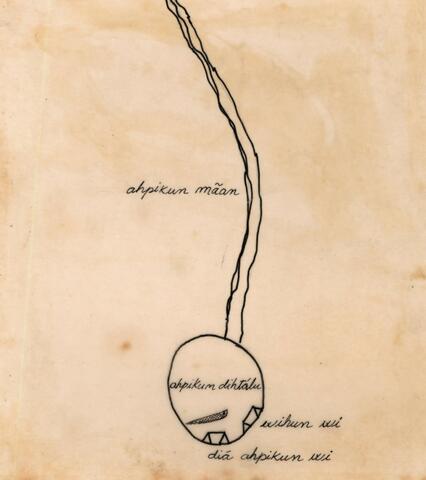 ahpikun mãan
ahpikun dihtálu
usihun wi
diá ahpikun wi